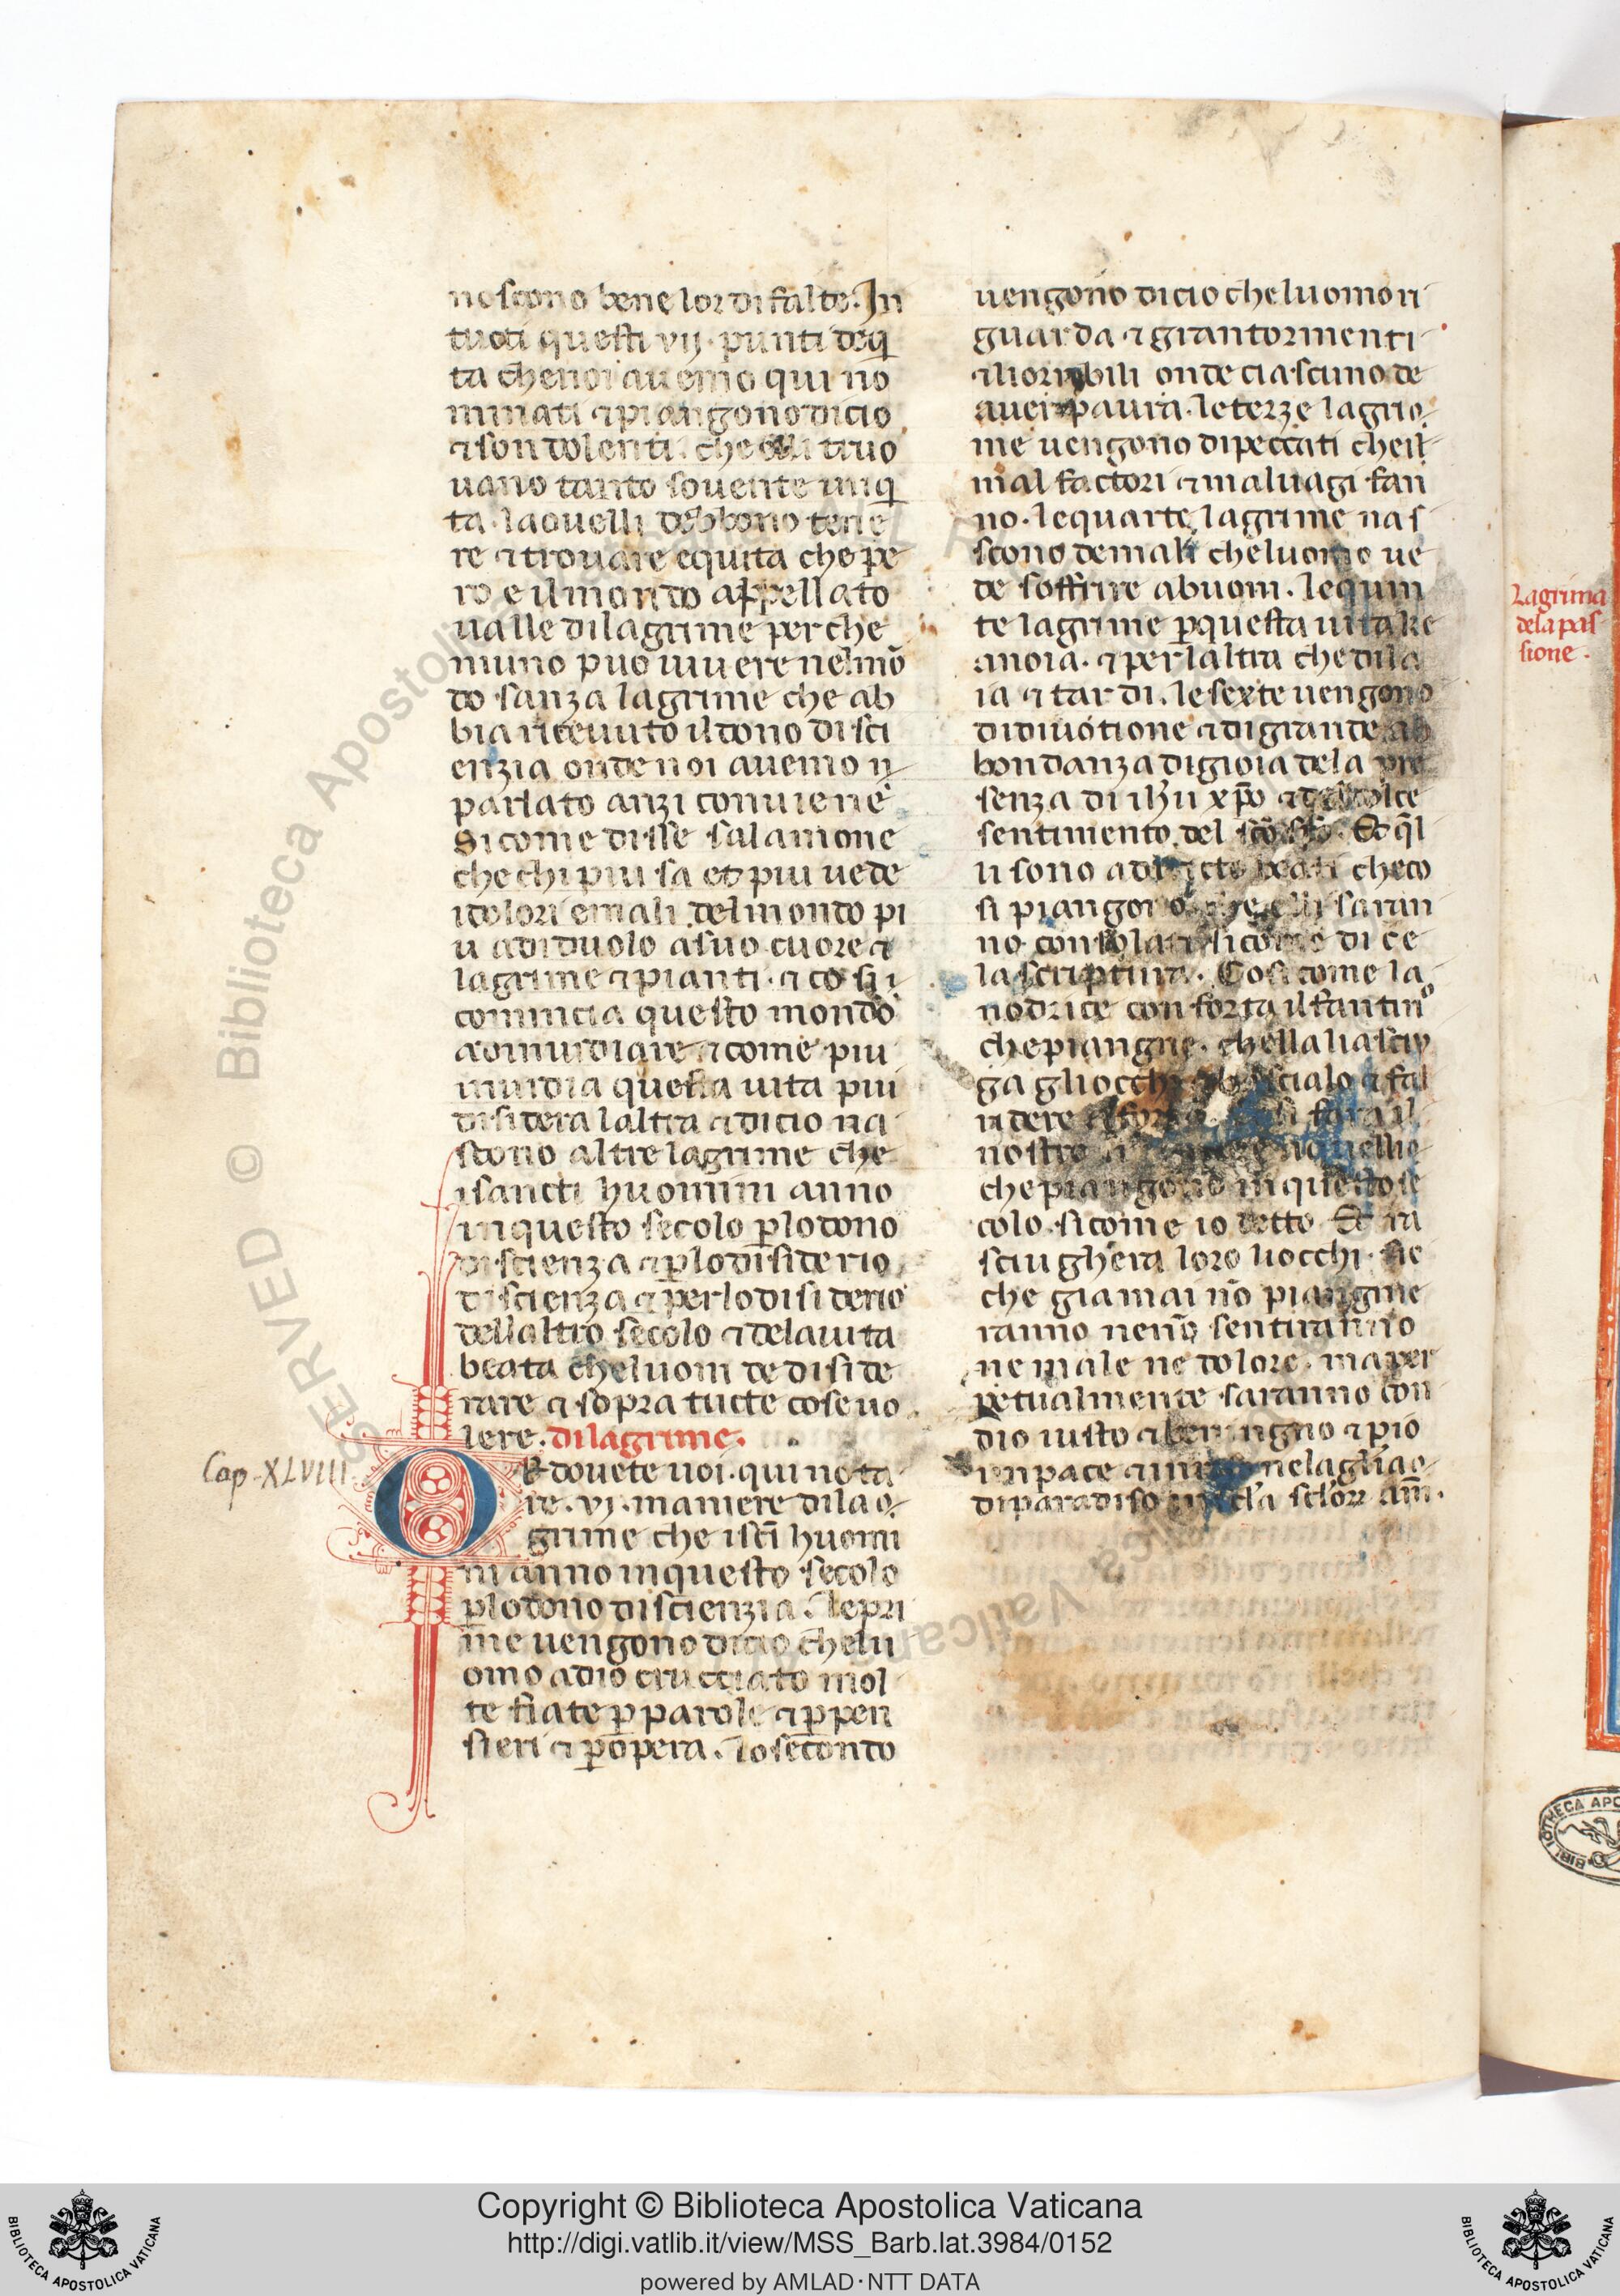 noscono bene lor difalte. In
tucti questi vij. punti deq̄
ta che noi auemo qui no
minati ⁊ piangono dicio
⁊ son dolenti. che elli truo
uano tanto souente iniq̄
ta. la ouelli debbono tene
re ⁊ trouare equita che pe
ro e il mondo appellato
ualle di lagrime perche
niuno puo uiuere nel mō
do sanza lagrime che ab
bia riceuuto il dono di sci
enzia onde noi auemo
parlato anzi conuiene
Si come disse salamone
che chi piu sa et piu uede
i dolori e mali del mondo pi
u a di duolo a suo cuore ⁊
lagrime ⁊ pianti. ⁊ cosi i
comincia questo mondo
a ⁊ come piu
questa uita piu
disidera laltra ⁊ dicio na
scono altre lagrime che
i sancti huomini anno
in questo secolo p̄ lo dono
di scienza ⁊ p̄ lo disiderio
di scienza ⁊ per lo disiderio
dellaltro secolo ⁊ dela uita
beata che luom de diside
rare ⁊ sopra tucte cose uo
lere. di lagrime.
Cap. XLVIII
OR douete uoi. qui nota
re. vj. maniere di la
grime che i sc̄i huomi
ni anno in questo secolo
p̄ lo dono di scienzia. Le pri
me uengono dicio che lu
omo a dio crucciato mol
te fiate p̄ parole ⁊ p̄ pen
sieri ⁊ p̄ opera. Lo secondo
uengono dicio che luomo ri
guarda ⁊ gran tormenti
⁊ li orribili onde ciascuno de
auer paura. le terze lagri
me uengono di peccati che il
mal factori ⁊ maluagi fan
no. le quarte lagrime nas
scono de mali che luomo ue
de soffrire a buoni. le quin
te lagrime p̄ questa uita ke
anoia. ⁊ per laltra che dila
ia ⁊ tardi. le sexte uengono
di diuotione ⁊ di grande ab
bondanza di gioia dela pre
senza di ih̄u xp̄o ⁊ del dolce
sentimento del sc̄o sp̄o. Et q̄l
li sono a diricto beati che co
si piangono che elli saran
no consolati si come dice
la scriptura. Cosi come la
nodrice conforta il fantino
che piangne. chella li asciu
ga gliocchi ⁊ bascialo ⁊ fal
ridere si fara il
nostro
che piangono in questo se
colo. si come io detto Et ra
sciughera loro liocchi. sie
che giamai nō piangne
ranno ne nō sentiranno
ne male ne dolore. ma per
petualmente saranno con
dio iusto ⁊ benigno ⁊ pio
in pace ⁊ nela glia
di paradiso scl̄oꝝ am̄.
Lagrima
dela pas
sione.
BIBLIOTHECA APO
RESERVED © Biblioteca Apostolica Vaticana ALL R
Copyright © Biblioteca Apostolica Vaticana
http://digi.vatlib.it/view/MSS_Barb.lat.3984/0152
powered by AMLAD·NTT DATA
BIBLIOTECA APOSTOLICA VATICANA
BIBLIOTECA APOSTOLICA VATICANA